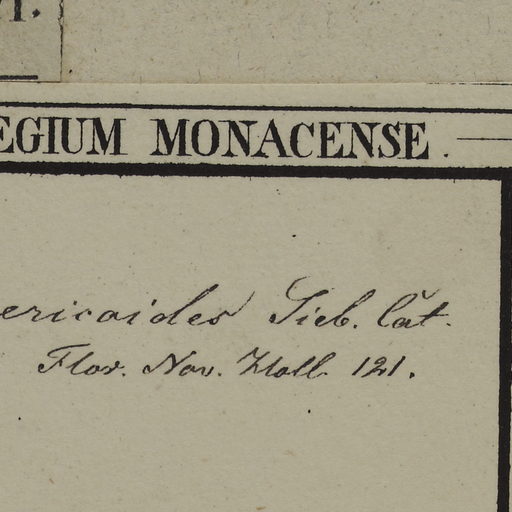 EGIUM MONACENSE.
ericoides Sieb. Cat.
Flor. Nov. Holl. 121.